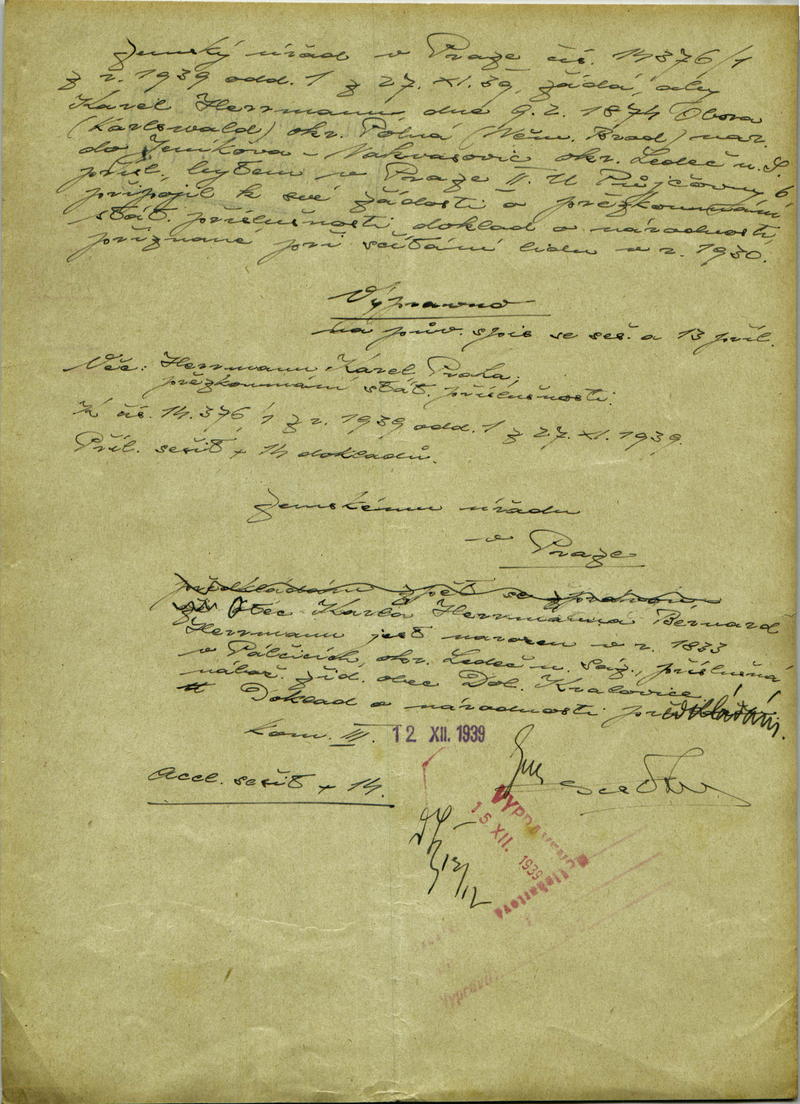 Zemský úřad v Praze čís. 14376/1
z r. 1939 odd. 1 z 27. XI. 39, žádá, aby
Karel Herrmann, dne 9. 2. 1874 Obora
(Karlswald) okr. Polná (Něm. Brod) nar.
do Jeníkova - Nakvasovic okr. Ledeč n. S.
přísl., bytem v Praze II. U Půjčovny 6
připojil k své žádosti o přezkoumání
stát. příslušnosti doklad o národnosti,
přiznané při sčítání lidu v r. 1930.
Výpravno
na pův. spis se seš. a 13 příl.
Věc: Herrmann Karel Praha,
přezkoumání stát. příslušnosti.
K čís. 14.376/1 z r. 1939 odd. 1 z 27. XI. 1939.
Příl. sešit + 14 dokladů.
Zemskému úřadu
v Praze
předkládám zpět se zprávou,
že Otec Karla Herrmanna Bernard
Herrmann jest narozen v r. 1833
v Pálčicích, okr. Ledeč n. Sáz., příslušná
nábož. žid. obec Dol. Kralovice.
Doklad o národnosti předkládám.
kom. III. 12 XII. 1939
Accl. sešit + 14.
VYPRAVENO
15 XII. 1939
12/12
Vypravil: